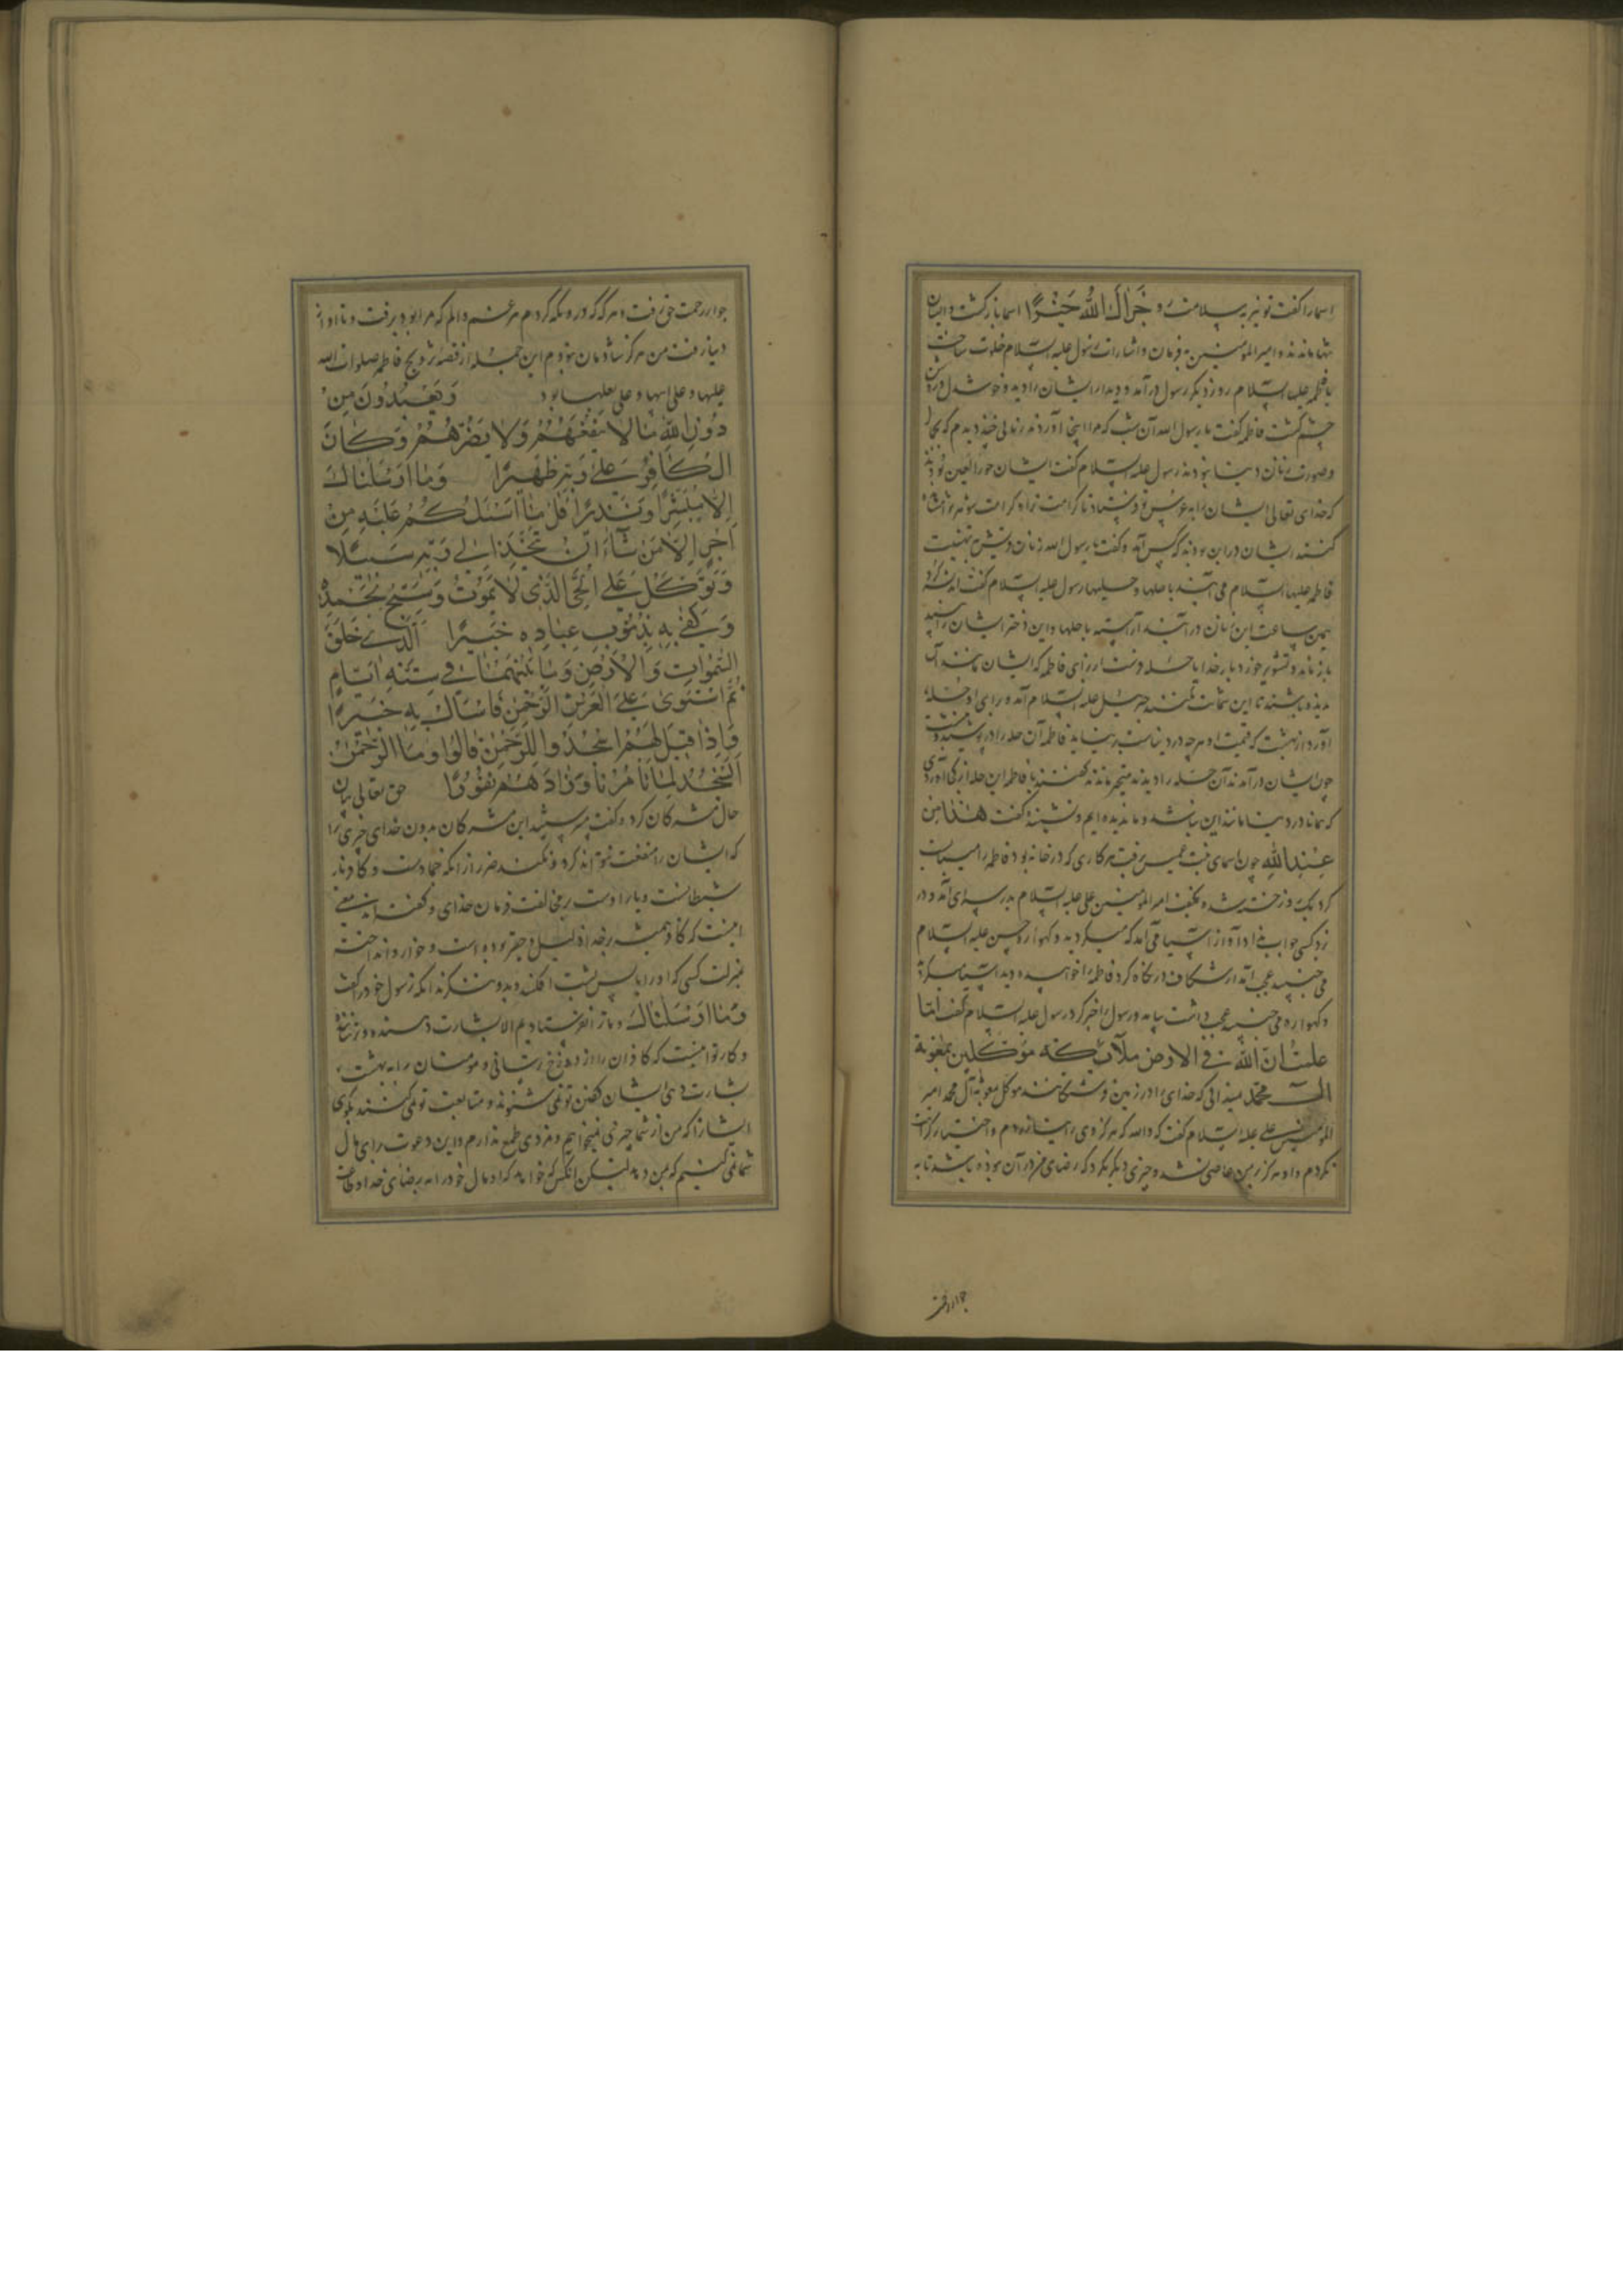 اسما را گفت تو نیز به سلامت رو جَزاكَ اللهُ خَيْرًا اسما بازگشت و ایشان
تنها ماندند و امیر المؤمنین به فرمان و اشارت رسول علیه السلام خلوت ساخت
با فاطمه علیها السلام روز دیگر رسول درآمد و دیدار ایشان را دید و خوشدل و روشن
چشم گشت فاطمه گفت یا رسول الله آن شب که مرا اینجا آوردند زنانی چند دیدم که بجمال
و صورت زنان دنیا نبودند رسول علیه السلام گفت ایشان حور العین بودند
که خدای تعالی ایشان را به عروسی تو فرستاد تا کرامت ترا و کرامت شوهر تو
ایشان درین بودند که کس آمد و گفت یا رسول الله زنان قریش به تهنیت
فاطمه علیها السلام می آیند با حلها و حلیها رسول علیه السلام گفت
همین ساعت این زنان درآیند آراسته با حلها و این دختر ایشان را
بار خدایا حله فرست از برای فاطمه که ایشان مانند آن
ندیده باشند تا این شماتت نکنند جبرئیل علیه السلام آمد و برای او حله
آورد از بهشت که قیمت او هر چه در دنیاست برنیاید فاطمه آن حله را درپوشید و بنشست
چون ایشان درآمدند آن حله را دیدند متحیر ماندند گفتند یا فاطمه این حله از کجا آوردی
که همانا در دنیا مانند این نباشد و ما ندیده ایم و نشنیده گفت هٰذا مِن
عِنْدِ اللهِ چون اسمای بنت عمیس برفت هر کاری که در خانه بود فاطمه را میبایست
کرد یک روز خسته شد و بخفت امیر المؤمنین علی علیه السلام بدر سرای آمد و در
زد کسی جواب نداد آواز آسیا می آمد که میگردید و گهواره حسین علیه السلام
می جنبید عجب آمد از شکاف در نگاه کرد فاطمه را خوابیده دید آسیا میگردید
و گهواره می جنبید عجب داشت بیامد و رسول را خبر کرد رسول علیه السلام گفت اما
علمت ان الله في الارض ملآئكة موكلين بمعونة
آل محمد نمیدانی که خدای را در زمین فرشتگانند موکل بمعونة آل محمد امیر
المؤمنین علی علیه السلام گفت که والله که هرگز وی را نیازردم و اختیار کراهت
نکردم و او هرگز در من عاصی نشد و چیزی دیگر نکرد که رضای من در آن نبوده باشد تا به
جوار رحمت
جوار رحمت حق رفت و هرگه که در وی نگه کردم هر غم و الم که مرا بود برفت و تا او از
دنیا رفت من هرگز شادمان نبودم این جمله از قصه تزویج فاطمه صلوات الله
علیها و علی ابیها و علی بعلها بود وَيَعْبُدُونَ مِنْ
دُونِ اللهِ مَا لَا يَنْفَعُهُمْ وَلَا يَضُرُّهُمْ وَكَانَ
الْكَافِرُ عَلَى رَبِّهِ ظَهِيرًا وَمَا أَرْسَلْنَاكَ
إِلَّا مُبَشِّرًا وَنَذِيرًا قُلْ مَا أَسْئَلُكُمْ عَلَيْهِ مِنْ
أَجْرٍ إِلَّا مَنْ شَآءَ أَنْ يَتَّخِذَ إِلَى رَبِّهِ سَبِيلًا
وَتَوَكَّلْ عَلَى الْحَيِّ الَّذِي لَا يَمُوتُ وَسَبِّحْ بِحَمْدِهِ
وَكَفَى بِهِ بِذُنُوبِ عِبَادِهِ خَبِيرًا الَّذِي خَلَقَ
السَّمٰوَاتِ وَالْأَرْضَ وَمَا بَيْنَهُمَا فِي سِتَّةِ أَيَّامٍ
ثُمَّ اسْتَوَى عَلَى الْعَرْشِ الرَّحْمٰنُ فَاسْأَلْ بِهِ خَبِيرًا
وَإِذَا قِيلَ لَهُمُ اسْجُدُوا لِلرَّحْمٰنِ قَالُوا وَمَا الرَّحْمٰنُ
أَنَسْجُدُ لِمَا تَأْمُرُنَا وَزَادَهُمْ نُفُورًا حق تعالی بیان
حال مشرکان کرد و گفت میپرستند این مشرکان بدون خدای چیزی را
که ایشان را منفعت نتواند کرد و نکند ضرر از آنکه جمادست و کافر یار
شیطانست و یار اوست بر مخالفت فرمان خدای و گفته اند معنی
اینست که کافر همیشه بر خدا ذلیل و حقیر بوده است و خوار و انداخته
بمنزلت کسی که او را با پس پشت افکنند و بدو ننگرند آنکه رسول خود را گفت
وَمَا أَرْسَلْنَاكَ و ما ترا نفرستادیم الا بشارت دهنده و ترساننده
و کار تو اینست که کافران را از دوزخ ترسانی و مومنان را به بهشت
بشارت دهی ایشان گفتن تو نمی شنوند و متابعت تو نمی کنند بگوی
ایشانرا که من از شما چیزی نمیخواهم و مزدی طمع ندارم و این دعوت برای مال
شما نمی کنیم که بمن دهید لیکن آنکس که خواهد که او مال خود را به رضای خدا و طاعت